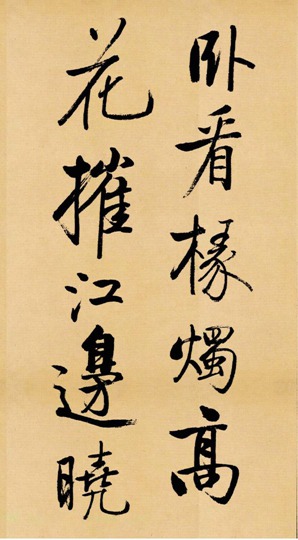 卧看椽燭高
花摧江邊曉